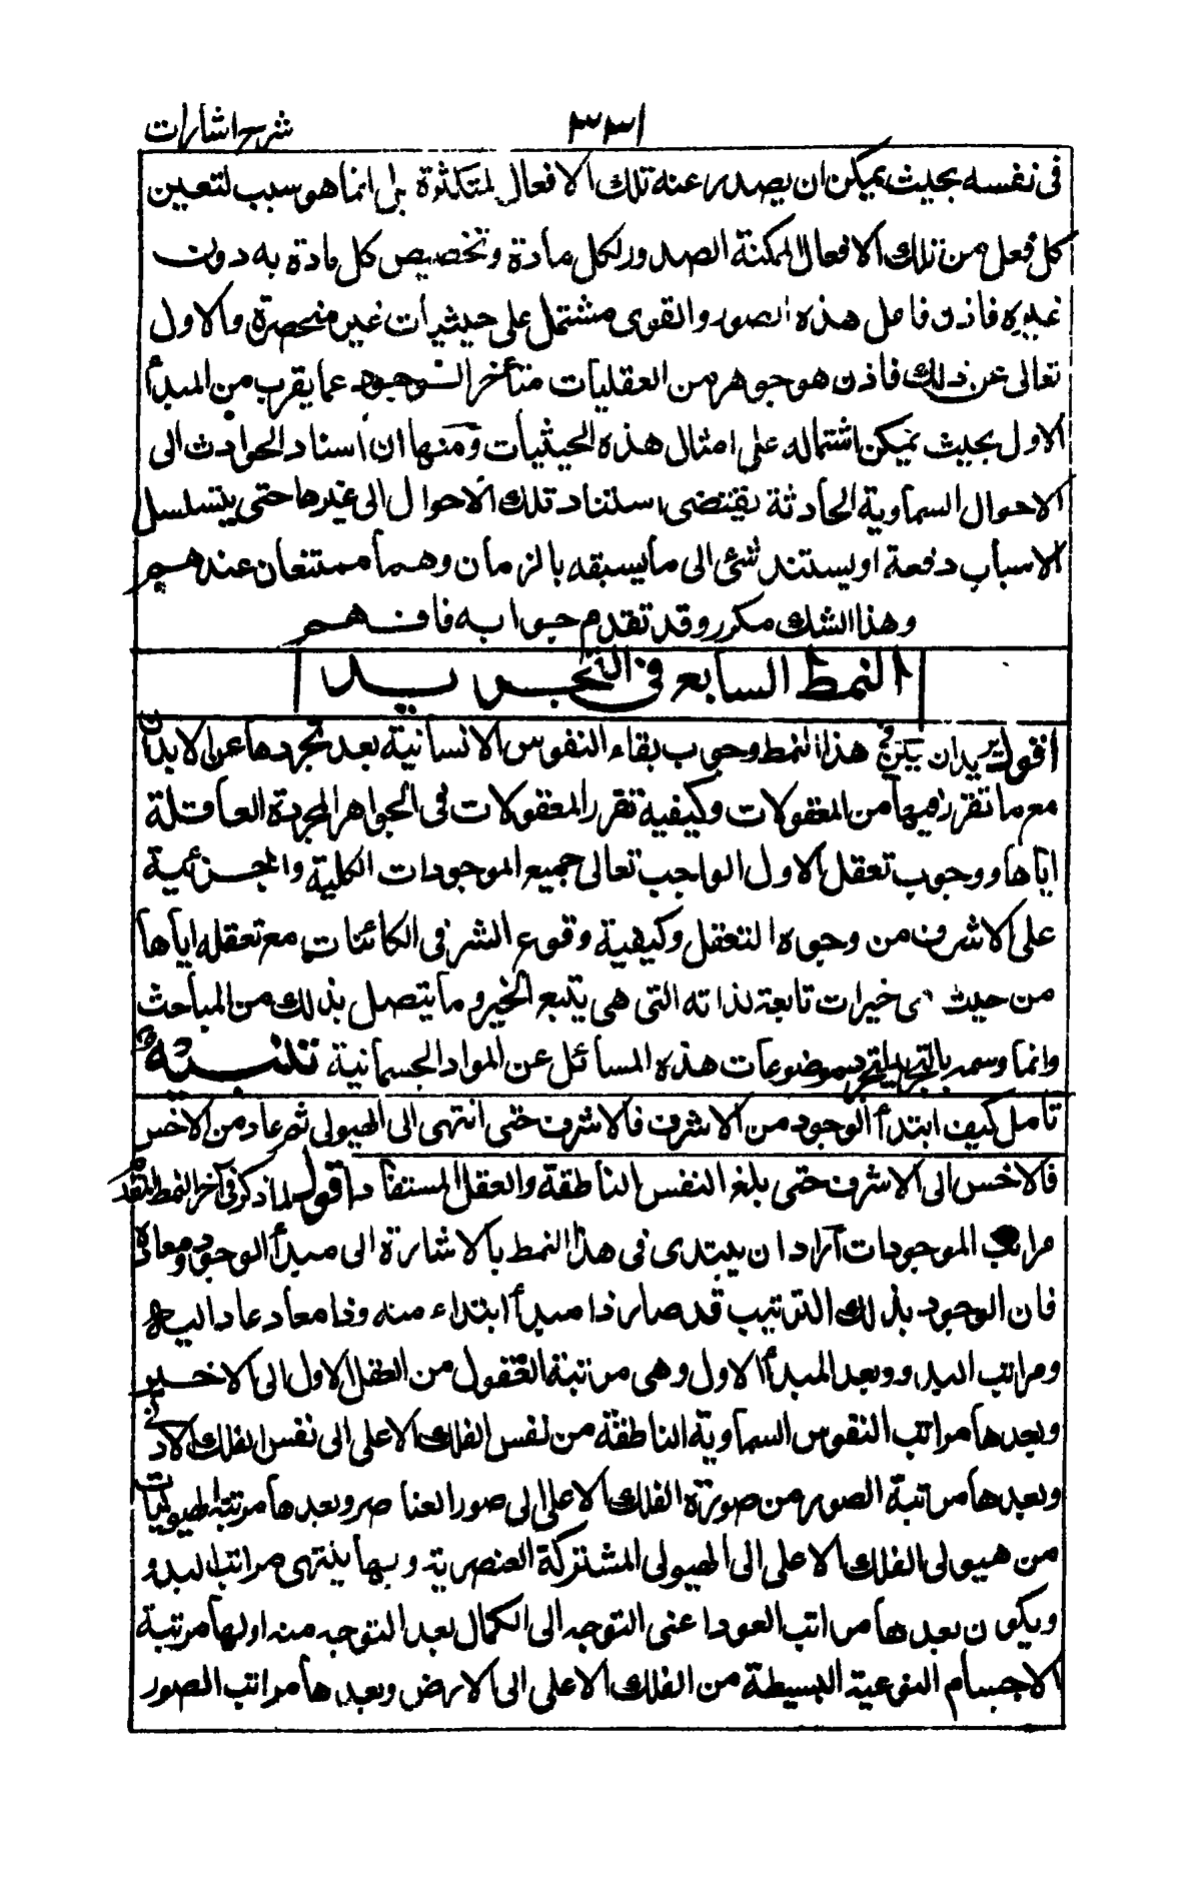 شرح اشارات
٣٣١
فى نفسه بحيث يمكن ان يصدر عنه تلك الافعال المتكثرة بل انما هو سبب لتعين
كل فعل من تلك الافعال الممكنة الصدور لكل مادة وتخصيص كل مادة به دون
غيره فاذن فاعل هذه الصور والقوى مشتمل على حيثيات غير منحصرة والاول
تعالى عن ذلك فاذن هو جوهر من العقليات متأخر الوجود عما يقرب من المبدأ
الاول بحيث يمكن اشتماله على امثال هذه الحيثيات ومنها ان اسناد الحوادث الى
الاحوال السماوية الحادثة يقتضى استناد تلك الاحوال الى غيرها حتى يتسلسل
الاسباب دفعة او يستند شئ الى ما يسبقه بالزمان وهما ممتنعان عندهم
وهذا الشك مكرر وقد تقدم جوابه فافهم
النمط السابع فى التجريد
اقول يريد ان يبين فى هذا النمط وجوب بقاء النفوس الانسانية بعد تجردها عن الابدان
مع ما تقرر فيها من المعقولات وكيفية تقرر المعقولات فى الجواهر المجردة العاقلة
اياها ووجوب تعقل الاول الواجب تعالى جميع الموجودات الكلية والجزئية
على الاشرف من وجوه التعقل وكيفية وقوع الشر فى الكائنات مع تعقله اياها
من حيث هى خيرات تابعة لذاته التى هى يتبع الخير وما يتصل بذلك من المباحث
وانما وسمه بالتجريد لتجرد موضوعات هذه المسائل عن المواد الجسمانية تنبيه
تأمل كيف ابتدأ الوجود من الاشرف فالاشرف حتى انتهى الى الهيولى ثم عاد من الاخس
فالاخس الى الاشرف حتى بلغ النفس الناطقة والعقل المستفاد اقول لما ذكر فى آخر النمط المتقدم
مراتب الموجودات اراد ان يبتدى فى هذا النمط بالاشارة الى مبدأ الوجود ومعاده
فان الوجود بذلك الترتيب قد صار ذا مبدأ ابتداء منه وذا معاد عاد اليه
ومراتب البدو وبعد المبدأ الاول وهى مرتبة العقول من العقل الاول الى الاخير
وبعدها مراتب النفوس السماوية الناطقة من نفس الفلك الاعلى الى نفس الفلك الادنى
وبعدها مرتبة الصور من صورة الفلك الاعلى الى صور العناصر وبعدها مرتبة الهيوليات
من هيولى الفلك الاعلى الى الهيولى المشتركة العنصرية وبها ينتهى مراتب البدو
ويكون بعدها مراتب العود اعنى التوجه الى الكمال بعد التوجه منه اولها مرتبة
الاجسام النوعية البسيطة من الفلك الاعلى الى الارض وبعدها مراتب الصور